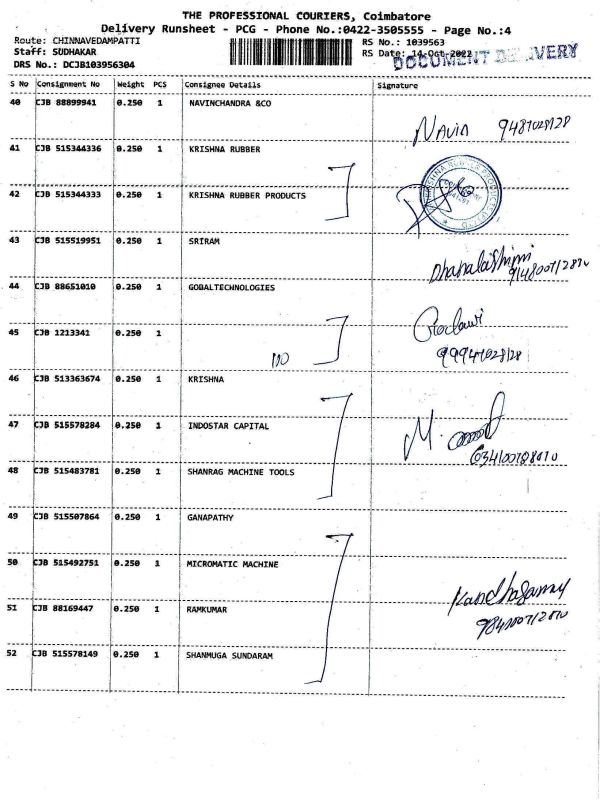 THE PROFESSIONAL COURIERS, Coimbatore
Delivery Runsheet - PCG - Phone No.:0422-3505555 - Page No.:4
Route: CHINNAVEDAMPATTI
Staff: SUDHAKAR
DRS No.: DCJB103956304
RS No.: 1039563
RS Date: 14-Oct-2022
DOCUMENT DELIVERY
S No Consignment No Weight PCS Consignee Details Signature
40 CJB 88899941 0.250 1 NAVINCHANDRA &CO
Navin
41 CJB 515344336 0.250 1 KRISHNA RUBBER
42 CJB 515344333 0.250 1 KRISHNA RUBBER PRODUCTS
43 CJB 515519951 0.250 1 SRIRAM
44 CJB 88651010 0.250 1 GOBALTECHNOLOGIES
45 CJB 1213341 0.250 1
46 CJB 513363674 0.250 1 KRISHNA
47 CJB 515578284 0.250 1 INDOSTAR CAPITAL
48 CJB 515483781 0.250 1 SHANRAG MACHINE TOOLS
49 CJB 515507864 0.250 1 GANAPATHY
50 CJB 515492751 0.250 1 MICROMATIC MACHINE
51 CJB 88169447 0.250 1 RAMKUMAR
Kandhasamy
52 CJB 515578149 0.250 1 SHANMUGA SUNDARAM